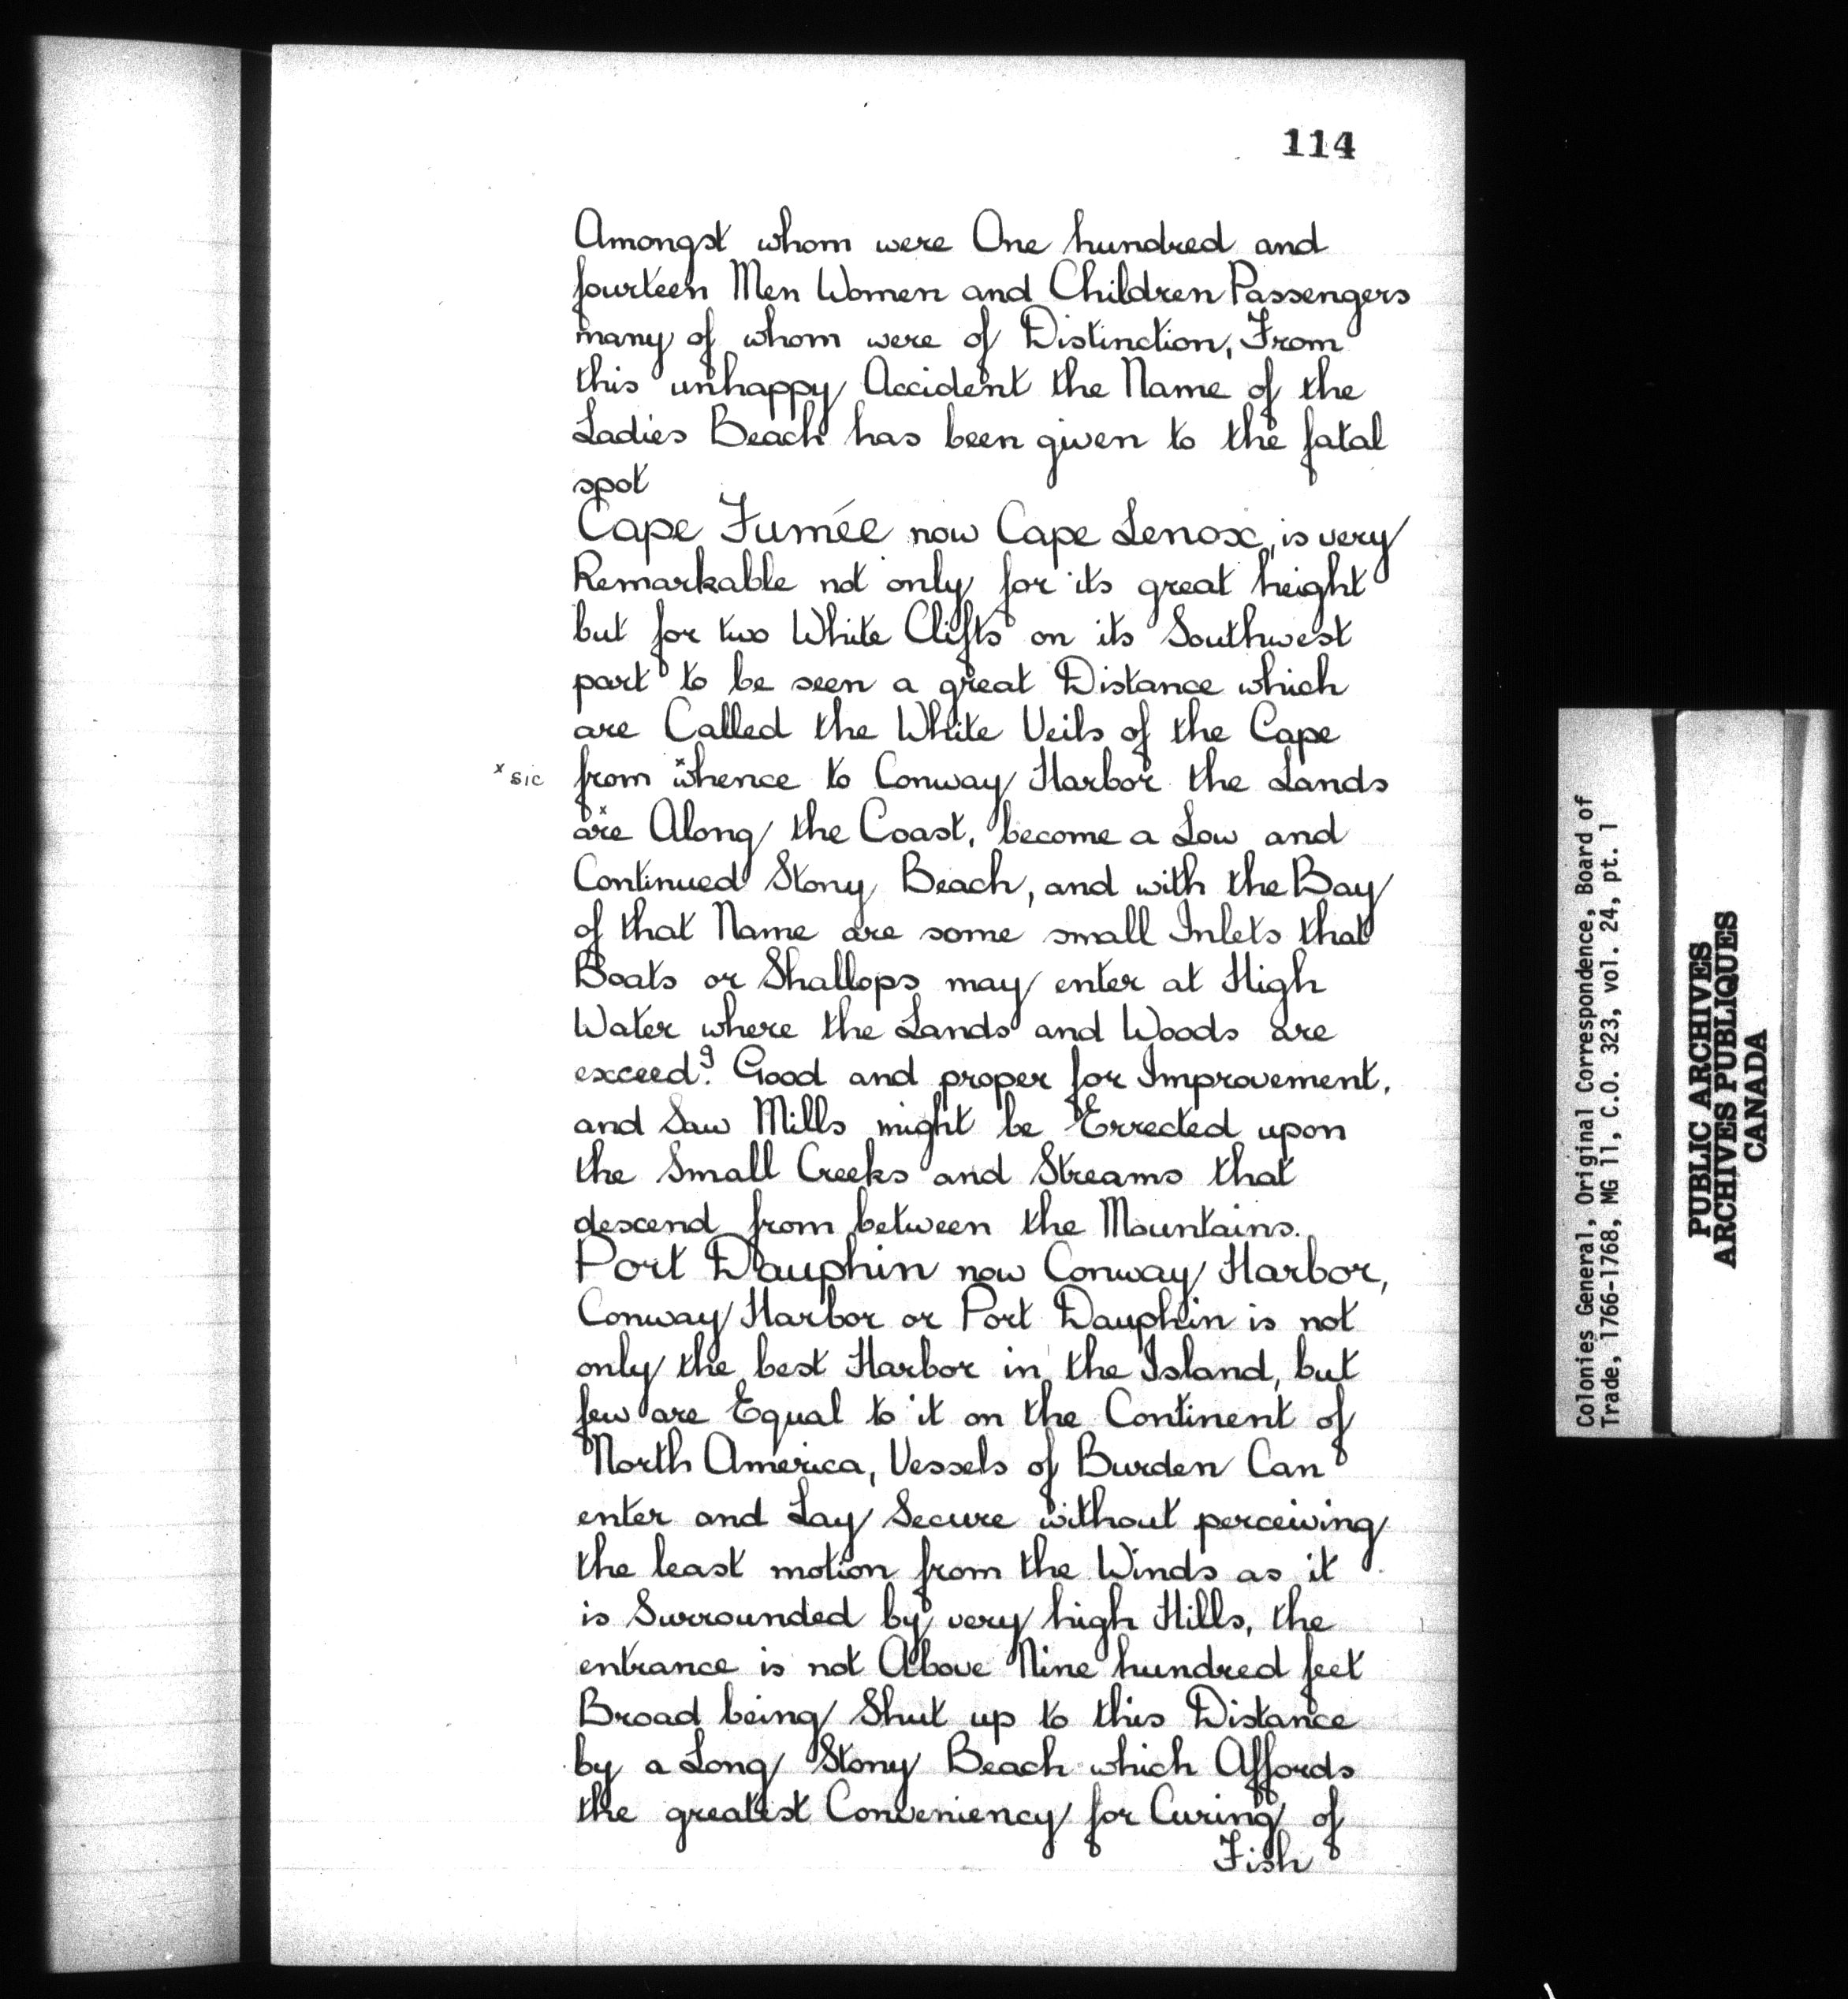 114
Amongst whom were One hundred and
fourteen Men Women and Children Passengers
many of whom were of Distinction, From
this unhappy Accident the Name of the
Ladies Beach has been given to the fatal
spot
Cape Fumée now Cape Lenox, is very
Remarkable not only for its great height
but for two White Clifts on its Southwest
part to be seen a great Distance which
are Called the White Veils of the Cape
x sic from xwhence to Conway Harbor the Lands
are x Along the Coast, become a Low and
Continued Stony Beach, and with the Bay
of that Name are some small Inlets that
Boats or Shallops may enter at High
Water where the Lands and Woods are
exceed.g Good and proper for Improvement,
and Saw Mills might be Errected upon
the Small Creeks and Streams that
descend from between the Mountains.
Port Dauphin now Conway Harbor,
Conway Harbor or Port Dauphin is not
only the best Harbor in the Island, but
few are Equal to it on the Continent of
North America, Vessels of Burden Can
enter and Lay Secure without perceiving
the least motion from the Winds as it
is Surrounded by very high Hills, the
entrance is not Above Nine hundred feet
Broad being Shut up to this Distance
by a Long Stony Beach which Affords
the greatest Conveniency for Curing of
Fish
Colonies General, Original Correspondence, Board of
Trade, 1766-1768, MG 11, C.O. 323, vol. 24, pt. 1
PUBLIC ARCHIVES
ARCHIVES PUBLIQUES
CANADA